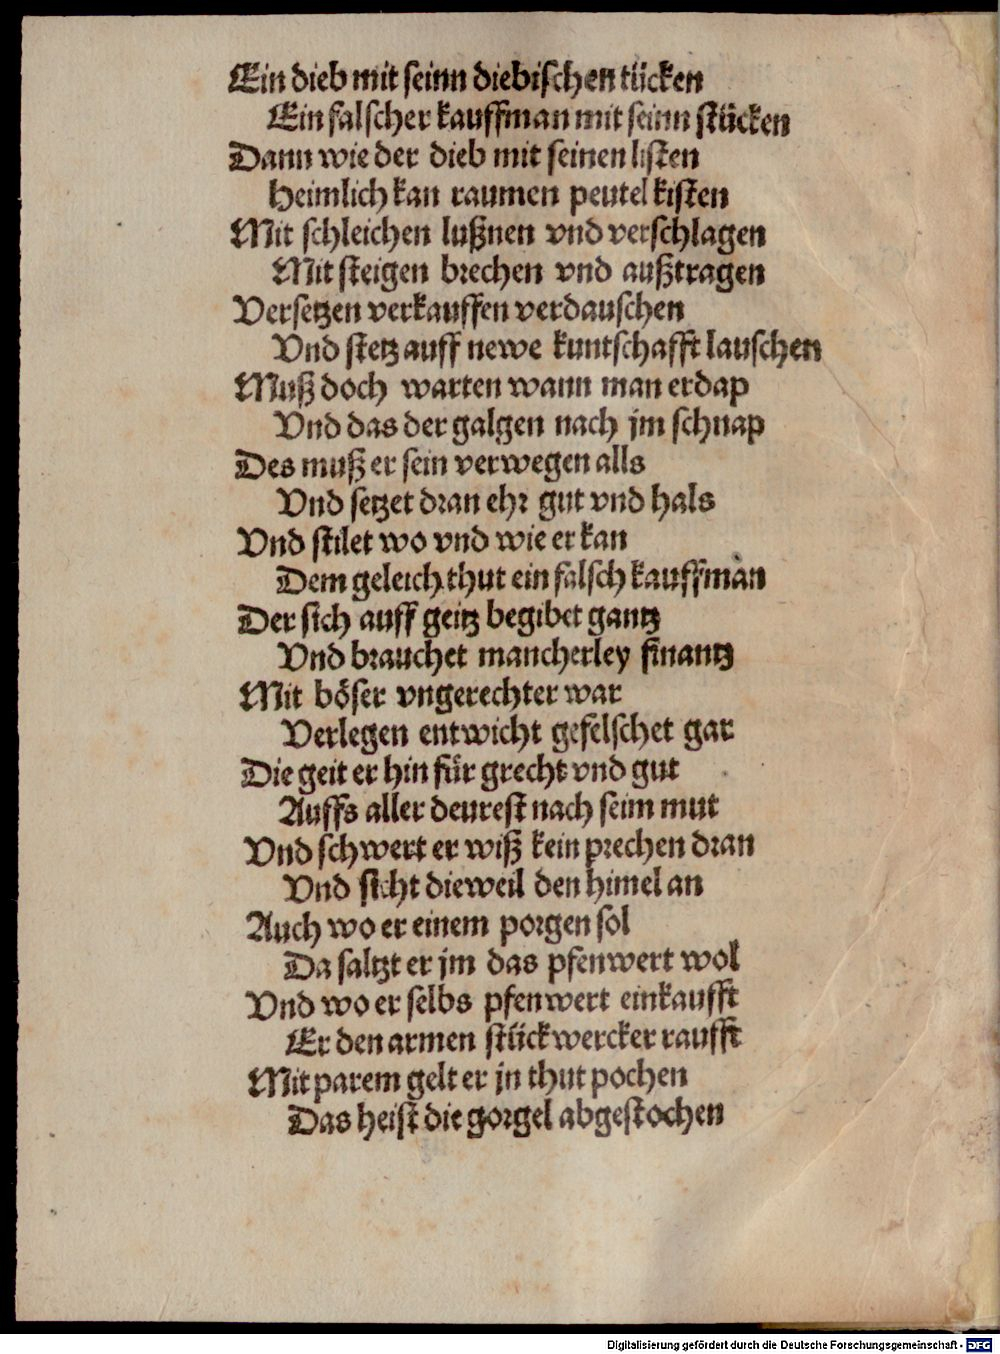 Ein dieb mit seinn diebischen tücken
Ein falscher kauffman mit seinn stücken
Dann wie der dieb mit seinen listen
Heimlich kan raumen peutel kisten
Mit schleichen lußnen vnd verschlagen
Mit steigen brechen vnd außtragen
Versetzen verkauffen verdauschen
Vnd stetz auff newe kuntschafft lauschen
Muß doch warten wann man erdap
Vnd das der galgen nach jm schnap
Des muß er sein verwegen alls
Vnd setzet dran ehr gut vnd hals
Vnd stilet wo vnd wie er kan
Dem geleich thut ein falsch kauffman
Der sich auff geitz begibet gantz
Vnd brauchet mancherley finantz
Mit böser vngerechter war
Verlegen entwicht gefelschet gar
Die geit er hin für grecht vnd gut
Auffs aller deurest nach seim mut
Vnd schwert er wiß kein prechen dran
Vnd sicht dieweil den himel an
Auch wo er einem porgen sol
Da saltzt er jm das pfenwert wol
Vnd wo er selbs pfenwert einkaufft
Er den armen stückwercker raufft
Mit parem gelt er jn thut pochen
Das heist die gorgel abgestochen
Digitalisierung gefördert durch die Deutsche Forschungsgemeinschaft - DFG